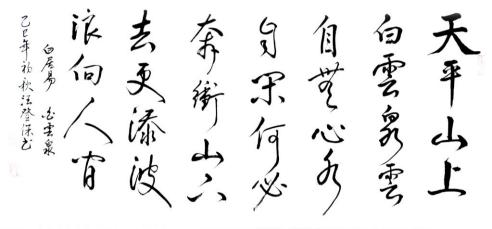 天平山上
白雲泉雲
自無心水
自閑何必
奔衝山下
去更添波
浪向人間
白居易 白雲泉
乙巳年初秋